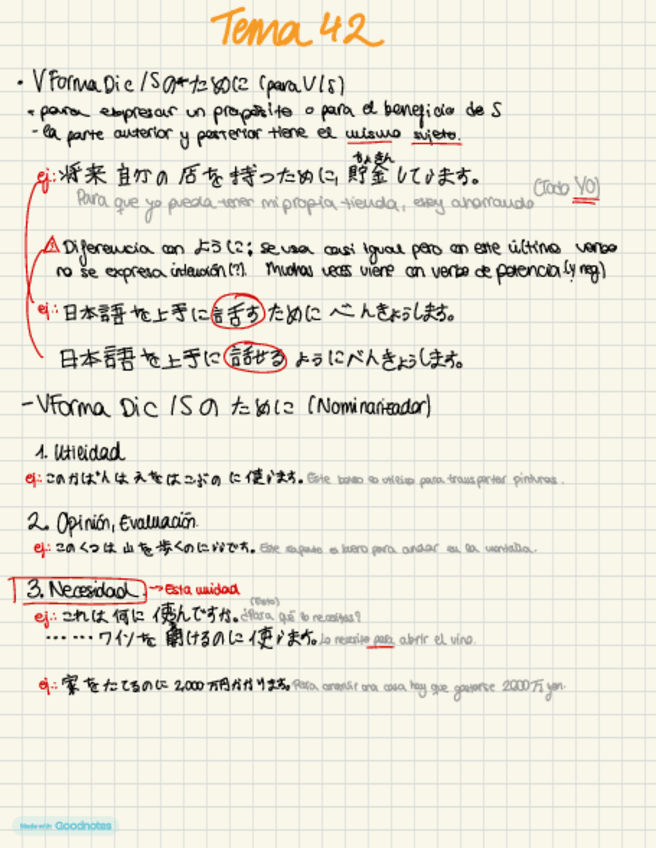 Tema 42
• VForma Dic /Sの ために (para V/S)
- para expresar un propósito o para el beneficio de S
- la parte anterior y posterior tiene el mismo sujeto.
ちょきん
ej: 将来 自分の 店を持つために, 貯金しています。 (Todo YO)
Para que yo pueda tener mi propia tienda, estoy ahorrando
⚠ Diferencia con ように; se usa casi igual pero con este último verbo
no se expresa intención(?). Muchas veces viene con verbo de potencia (y neg)
ej: 日本語を上手に話すために べんきょうします。
日本語を上手に 話せる ようにべんきょうします。
- VForma Dic /Sの ために (Nominalizador)
1. Utilidad
ej: このかばんは えをはこぶの に使います。 Este bolso se utiliza para transportar pinturas.
2. Opinión, Evaluación.
ej: このくつは 山を歩くのにいいです。 Este zapato es bueno para andar en la montaña.
3. Necesidad → Esta unidad
ej: これは何に使んですか。 ¿Para qué lo necesitas?
...... ワインを開けるのに使います。 Lo necesito para abrir el vino.
ej: 家をたてるのに 2,000万円かかります。 Para construir una casa hay que gastarse 2000万 yen.
Made with Goodnotes